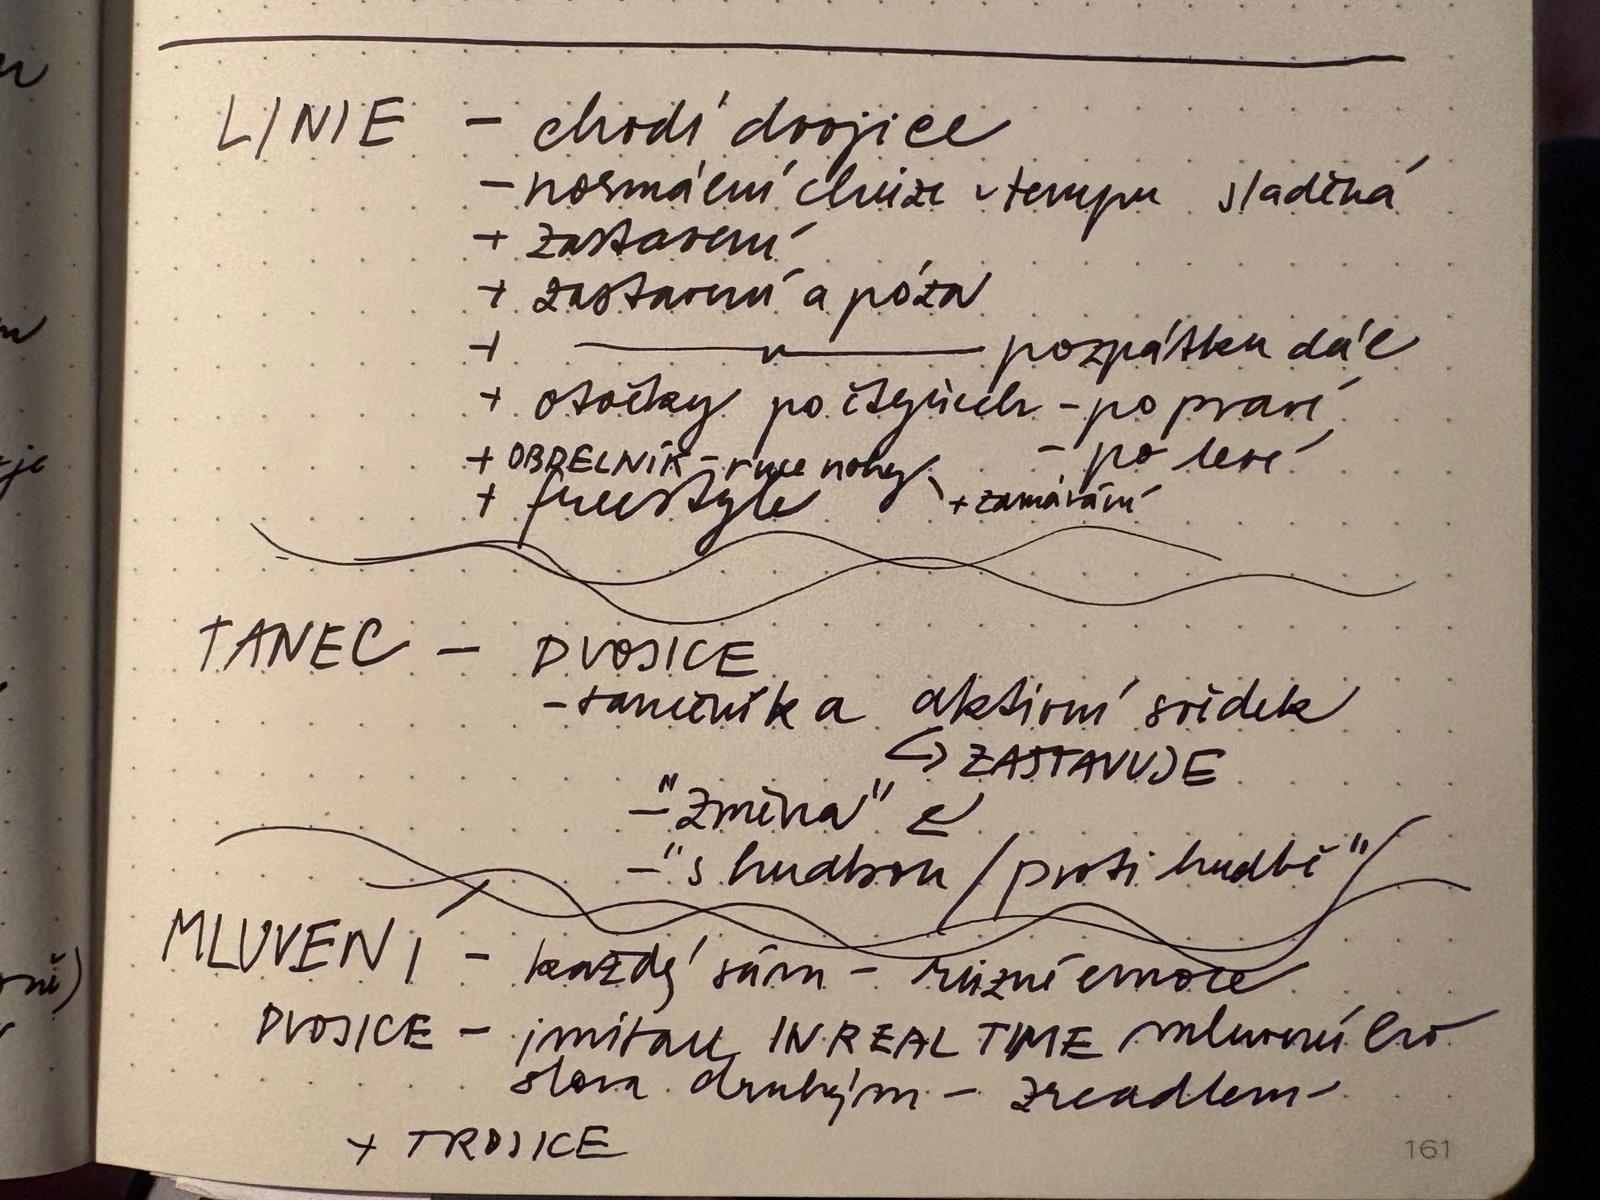 LINIE - chodí dvojice
- normální chůze v tempu sladěná
+ zastavení
+ zastavení a póza
+ —— " —— pozpátku dál
+ otočky po čtyřech - po pravé
- po levé
+ OBDELNÍK - ruce nohy
+ zamávání
+ freestyle
TANEC - DVOJICE
- tanečník a aktivní svědek
↳ ZASTAVUJE
- "změna" ↲
- "s hudbou / proti hudbě"
MLUVENÍ - každý sám - různé emoce
DVOJICE - imitace IN REAL TIME mluveného
slova druhým - zrcadlem
+ TROJICE
161